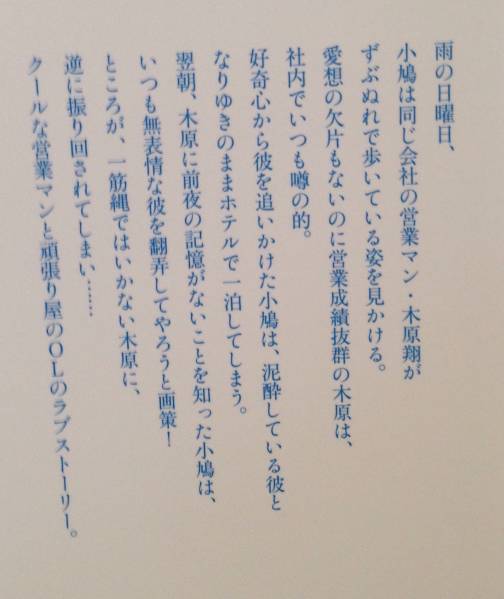 雨の日曜日、
小鳩は同じ会社の営業マン・木原翔が
ずぶぬれで歩いている姿を見かける。
愛想の欠片もないのに営業成績抜群の木原は、
社内でいつも噂の的。
好奇心から彼を追いかけた小鳩は、泥酔している彼と
なりゆきのままホテルで一泊してしまう。
翌朝、木原に前夜の記憶がないことを知った小鳩は、
いつも無表情な彼を翻弄してやろうと画策！
ところが、一筋縄ではいかない木原に、
逆に振り回されてしまい……
クールな営業マンと頑張り屋のOLのラブストーリー。